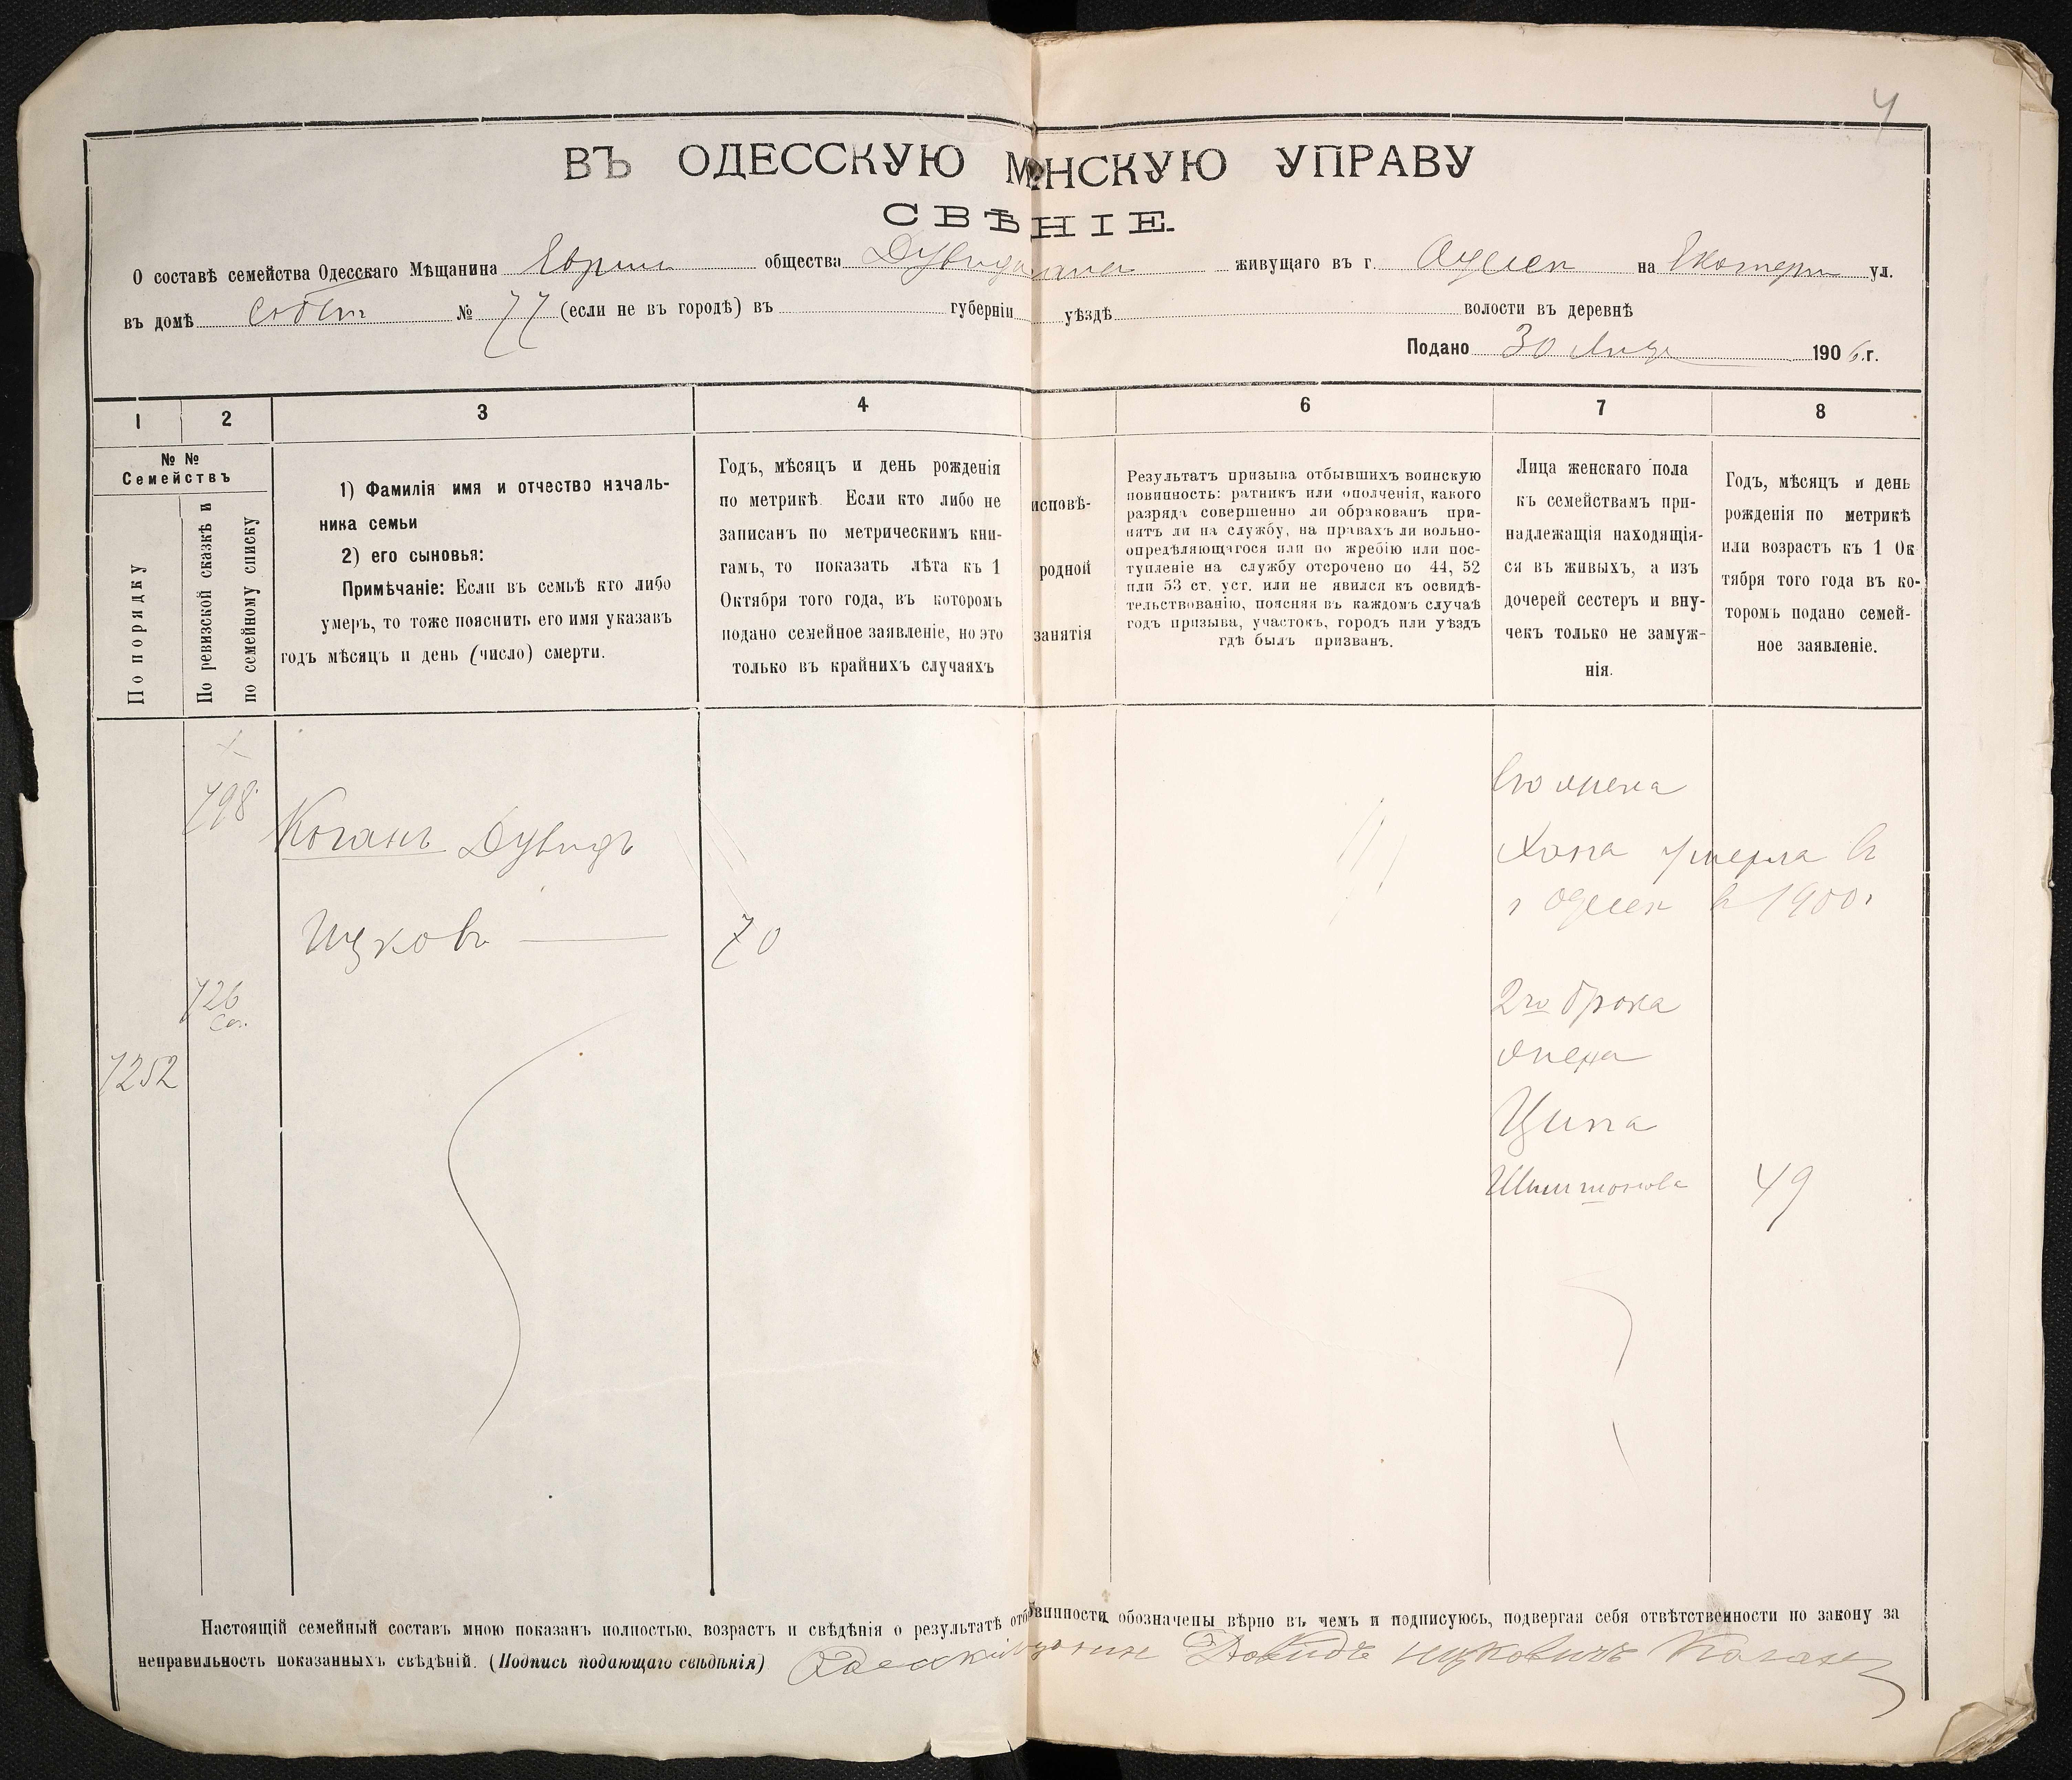 4
ВЪ ОДЕССКУЮ М НСКУЮ УПРАВУ
СВѢ НІЕ.
О составѣ семейства Одесскаго Мѣщанина Еврейск общества Дувида живущаго въ г. Одессѣ на Екатерин ул.
въ домѣ Собст № 77 (если не въ городѣ) въ губерніи уѣздѣ волости въ деревнѣ
Подано 30 1906 г.
1 2 3 4 6 7 8
№ № Семействъ
По порядку
По ревизской сказкѣ и по семейному списку
1) Фамилія имя и отчество началь-
ника семьи
2) его сыновья:
Примѣчаніе: Если въ семьѣ кто либо
умеръ, то тоже пояснить его имя указавъ
годъ мѣсяцъ и день (число) смерти.
Годъ, мѣсяцъ и день рожденія
по метрикѣ. Если кто либо не
записанъ по метрическимъ кни-
гамъ, то показать лѣта къ 1
Октября того года, въ которомъ
подано семейное заявленіе, но это
только въ крайнихъ случаяхъ
исповѣ-
родной
занятія
Результатъ призыва отбывшихъ воинскую
повинность: ратникъ или ополченія, какого
разряда совершенно ли обракованъ при-
нятъ ли на службу, на правахъ ли вольно-
опредѣляющагося или по жребію или пос-
тупленіе на службу отсрочено по 44, 52
или 53 ст. уст. или не явился къ освидѣ-
тельствованію, поясняя въ каждомъ случаѣ
годъ призыва, участокъ, городъ или уѣздъ
гдѣ былъ призванъ.
Лица женскаго пола
къ семействамъ при-
надлежащія находящія-
ся въ живыхъ, а изъ
дочерей сестеръ и вну-
чекъ только не замуж-
нія.
Годъ, мѣсяцъ и день
рожденія по метрикѣ
или возрастъ къ 1 Ок
тября того года въ ко-
торомъ подано семей-
ное заявленіе.
798
Коганъ Дувидъ
Ицковъ 70
726
7252
Его жена
Хона умерла въ
г Одессѣ в 1900 г
2го брака
жена
Ципа
Шимшонова 49
Настоящій семейный составъ мною показанъ полностью, возрастъ и свѣдѣнія о результатѣ отб винности обозначены вѣрно въ чемъ и подписуюсь, подвергая себя отвѣтственности по закону за
неправильность показанныхъ свѣдѣній. (Подпись подающаго свѣдѣнія) Одесскій Довидъ Ицковичъ Коганъ